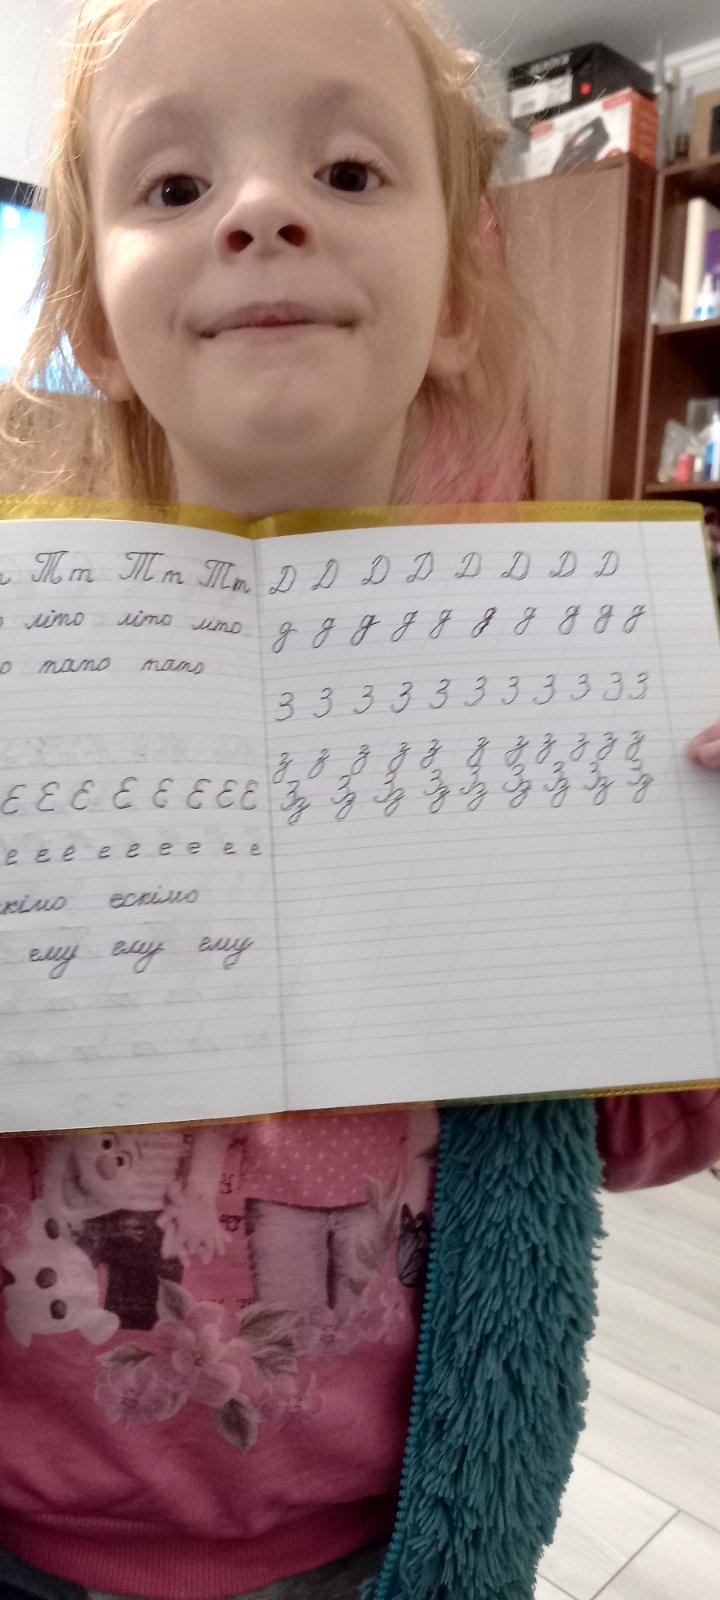 Тт Тт Тт
літо літо літо
тато тато
Е Е Е Е Е Е Е Е
е е е е е е е е е
ескімо
ему ему ему
Д Д Д Д Д Д Д Д
д д д д д д д д д д
З З З З З З З З З З З
з з з з з з з з з з з
Зз Зз Зз Зз Зз Зз Зз Зз Зз